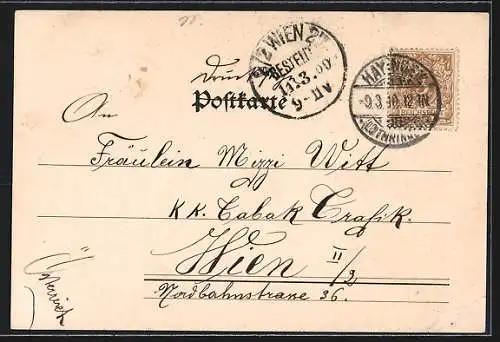 Drucks.
Postkarte
WIEN 2
BESTELLT
11.3.00
9-11V
-9.3.00.12-1N
An
Fräulein Mizzi Witt
K.K. Tabak Trafik.
Wien II/2
Nordbahnstrasse 36.
Österreich